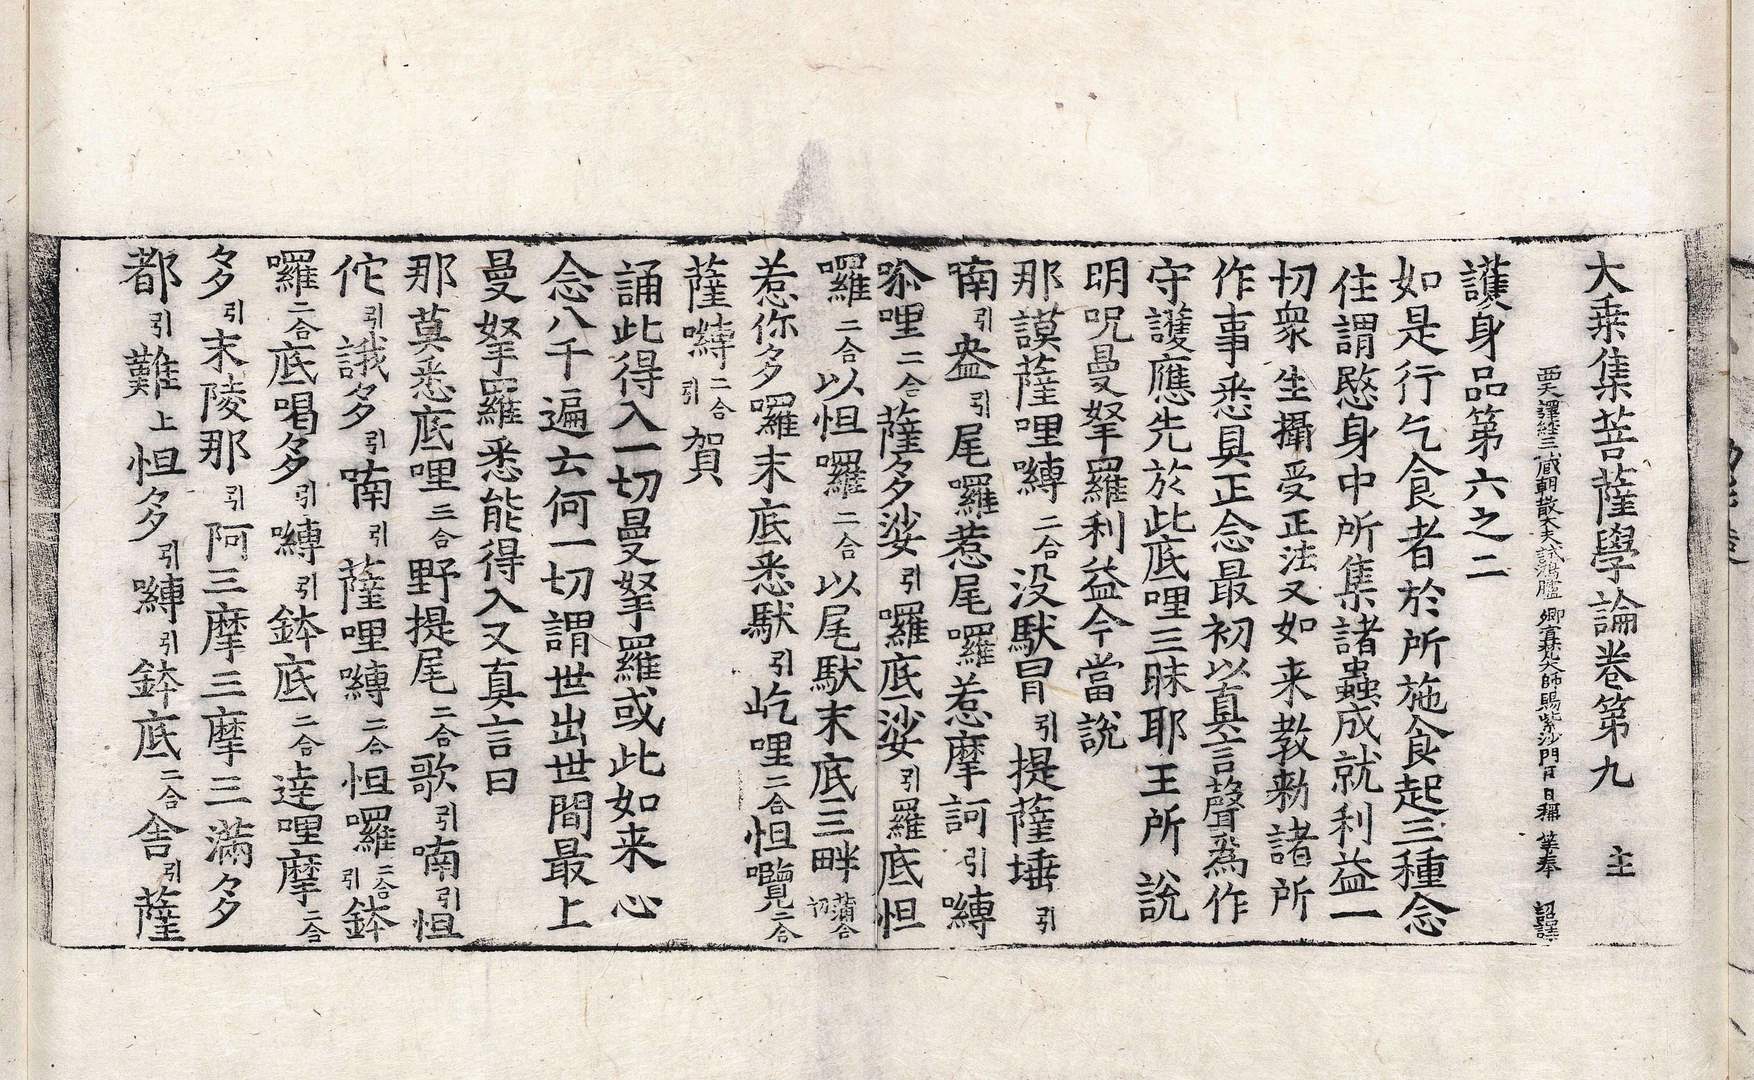 大乗集菩薩學論卷第九 主
西天譯経三藏朝散大夫試鴻臚卿宣梵大師賜紫沙門臣日稱等奉 詔譯
護身品第六之二
如是行乞食者於所施食起三種念
住謂愍身中所集諸蟲成就利益一
切衆生攝受正法又如来教勑諸所
作事悉具正念最初以真言聲為作
守護應先於此底哩三昧耶王所說
明呪曼拏羅利益今當說
那謨薩哩嚩二合沒馱冒引提薩埵引
喃引盎引尾囉惹尾囉惹摩訶引嚩
哳哩二合薩多娑引囉底娑引羅底怛
囉二合以怛囉二合以尾馱末底三畔蒲合切
惹你多囉末底悉馱引屹哩二合怛囕二合
薩嚩二合引賀
誦此得入一切曼拏羅或此如来心
念八千遍云何一切謂世出世間最上
曼拏羅悉能得入又真言曰
那莫悉底哩三合野提尾二合歌引喃引怛
佗引誐多引喃引薩哩嚩二合怛囉二合引鉢
囉二合底喝多引嚩引鉢底二合達哩摩二合
多引末陵那引阿三摩三摩三滿多
都引難上怛多引嚩引鉢底二合舍引薩